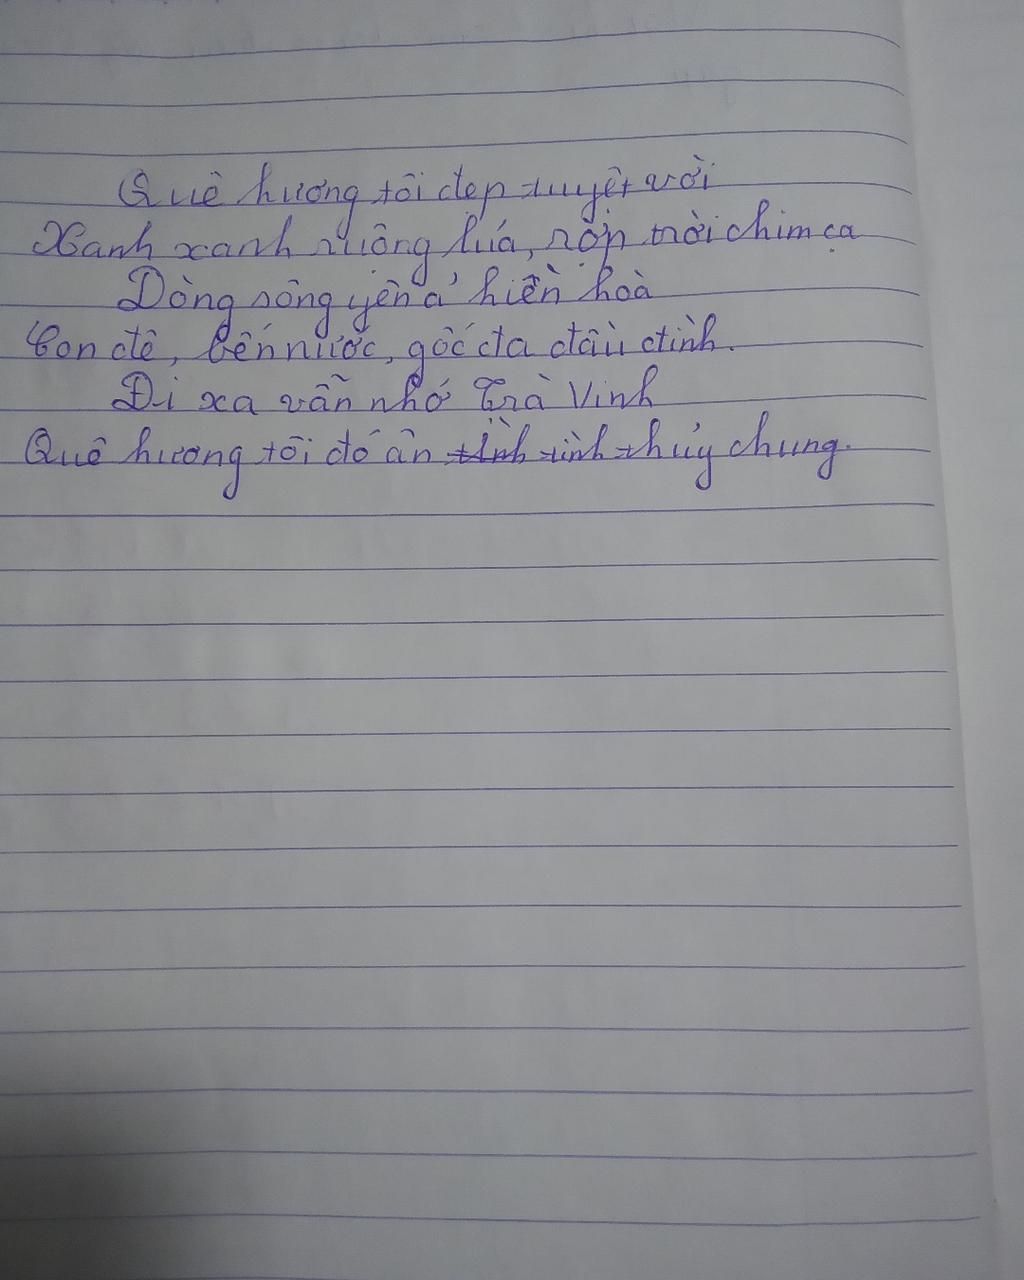 Quê hương tôi đẹp tuyệt vời
Xanh xanh ruộng lúa, rợp trời chim ca
Dòng sông yên ả hiền hoà
Con đê, bến nước, gốc đa đầu đình.
Đi xa vẫn nhớ Trà Vinh
Quê hương tôi đó ân tình tình thủy chung.